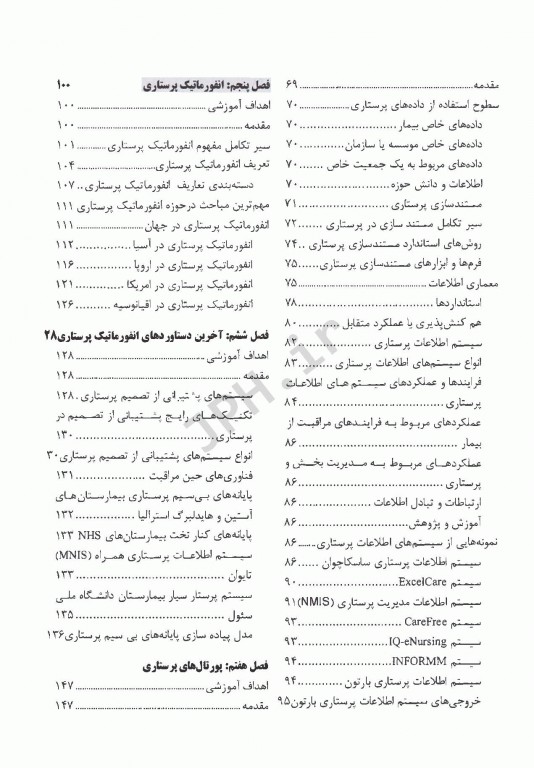 مقدمه ۶۹
سطوح استفاده از داده‌های پرستاری ۷۰
داده‌های خاص بیمار ۷۰
داده‌های خاص موسسه یا سازمان ۷۰
داده‌های مربوط به یک جمعیت خاص ۷۰
اطلاعات و دانش حوزه ۷۰
مستندسازی پرستاری ۷۱
سیر تکامل مستند سازی در پرستاری ۷۲
روش‌های استاندارد مستندسازی پرستاری ۷۴
فرم‌ها و ابزارهای مستندسازی پرستاری ۷۵
معماری اطلاعات ۷۵
استانداردها ۷۸
هم کنش‌پذیری یا عملکرد متقابل ۸۰
سیستم اطلاعات پرستاری ۸۲
انواع سیستم‌های اطلاعات پرستاری ۸۳
فرایندها و عملکردهای سیستم های اطلاعات
پرستاری ۸۴
عملکردهای مربوط به فرایندهای مراقبت از
بیمار ۸۶
عملکردهای مربوط به مدیریت بخش و
پرستاری ۸۶
ارتباطات و تبادل اطلاعات ۸۶
آموزش و پژوهش ۸۶
نمونه‌هایی از سیستم‌های اطلاعات پرستاری ۸۶
سیستم اطلاعات پرستاری ساسکاچوان ۸۶
سیستم ExcelCare ۹۰
سیستم اطلاعات مدیریت پرستاری (NMIS) ۹۱
سیستم CareFree ۹۳
سیستم IQ-eNursing ۹۳
سیستم INFORMM ۹۴
سیستم اطلاعات پرستاری بارتون ۹۴
خروجی‌های سیستم اطلاعات پرستاری بارتون ۹۵
فصل پنجم: انفورماتیک پرستاری ۱۰۰
اهداف آموزشی ۱۰۰
مقدمه ۱۰۰
سیر تکامل مفهوم انفورماتیک پرستاری ۱۰۱
تعریف انفورماتیک پرستاری ۱۰۴
دسته‌بندی تعاریف انفورماتیک پرستاری ۱۰۷
مهم‌ترین مباحث درحوزه انفورماتیک پرستاری ۱۱۱
انفورماتیک پرستاری در جهان ۱۱۱
انفورماتیک پرستاری در آسیا ۱۱۲
انفورماتیک پرستاری در اروپا ۱۱۶
انفورماتیک پرستاری در امریکا ۱۲۱
انفورماتیک پرستاری در اقیانوسیه ۱۲۶
فصل ششم: آخرین دستاوردهای انفورماتیک پرستاری ۲۸
اهداف آموزشی ۱۲۸
مقدمه ۱۲۸
سیستم‌های پشتیبانی از تصمیم پرستاری ۱۲۸
تکنیک‌های رایج پشتیبانی از تصمیم در
پرستاری ۱۳۰
انواع سیستم‌های پشتیبانی از تصمیم پرستاری ۳۰
فناوری‌های حین مراقبت ۱۳۱
پایانه‌های بی‌سیم پرستاری بیمارستان‌های
آستین و هایدلبرگ استرالیا ۱۳۲
پایانه‌های کنار تخت بیمارستان‌های NHS ۱۳۳
سیستم اطلاعات پرستاری همراه (MNIS)
تایوان ۱۳۳
سیستم پرستار سیار بیمارستان دانشگاه ملی
سئول ۱۳۵
مدل پیاده سازی پایانه‌های بی سیم پرستاری ۱۳۶
فصل هفتم: پورتال‌های پرستاری
اهداف آموزشی ۱۴۷
مقدمه ۱۴۷
JPH.ir